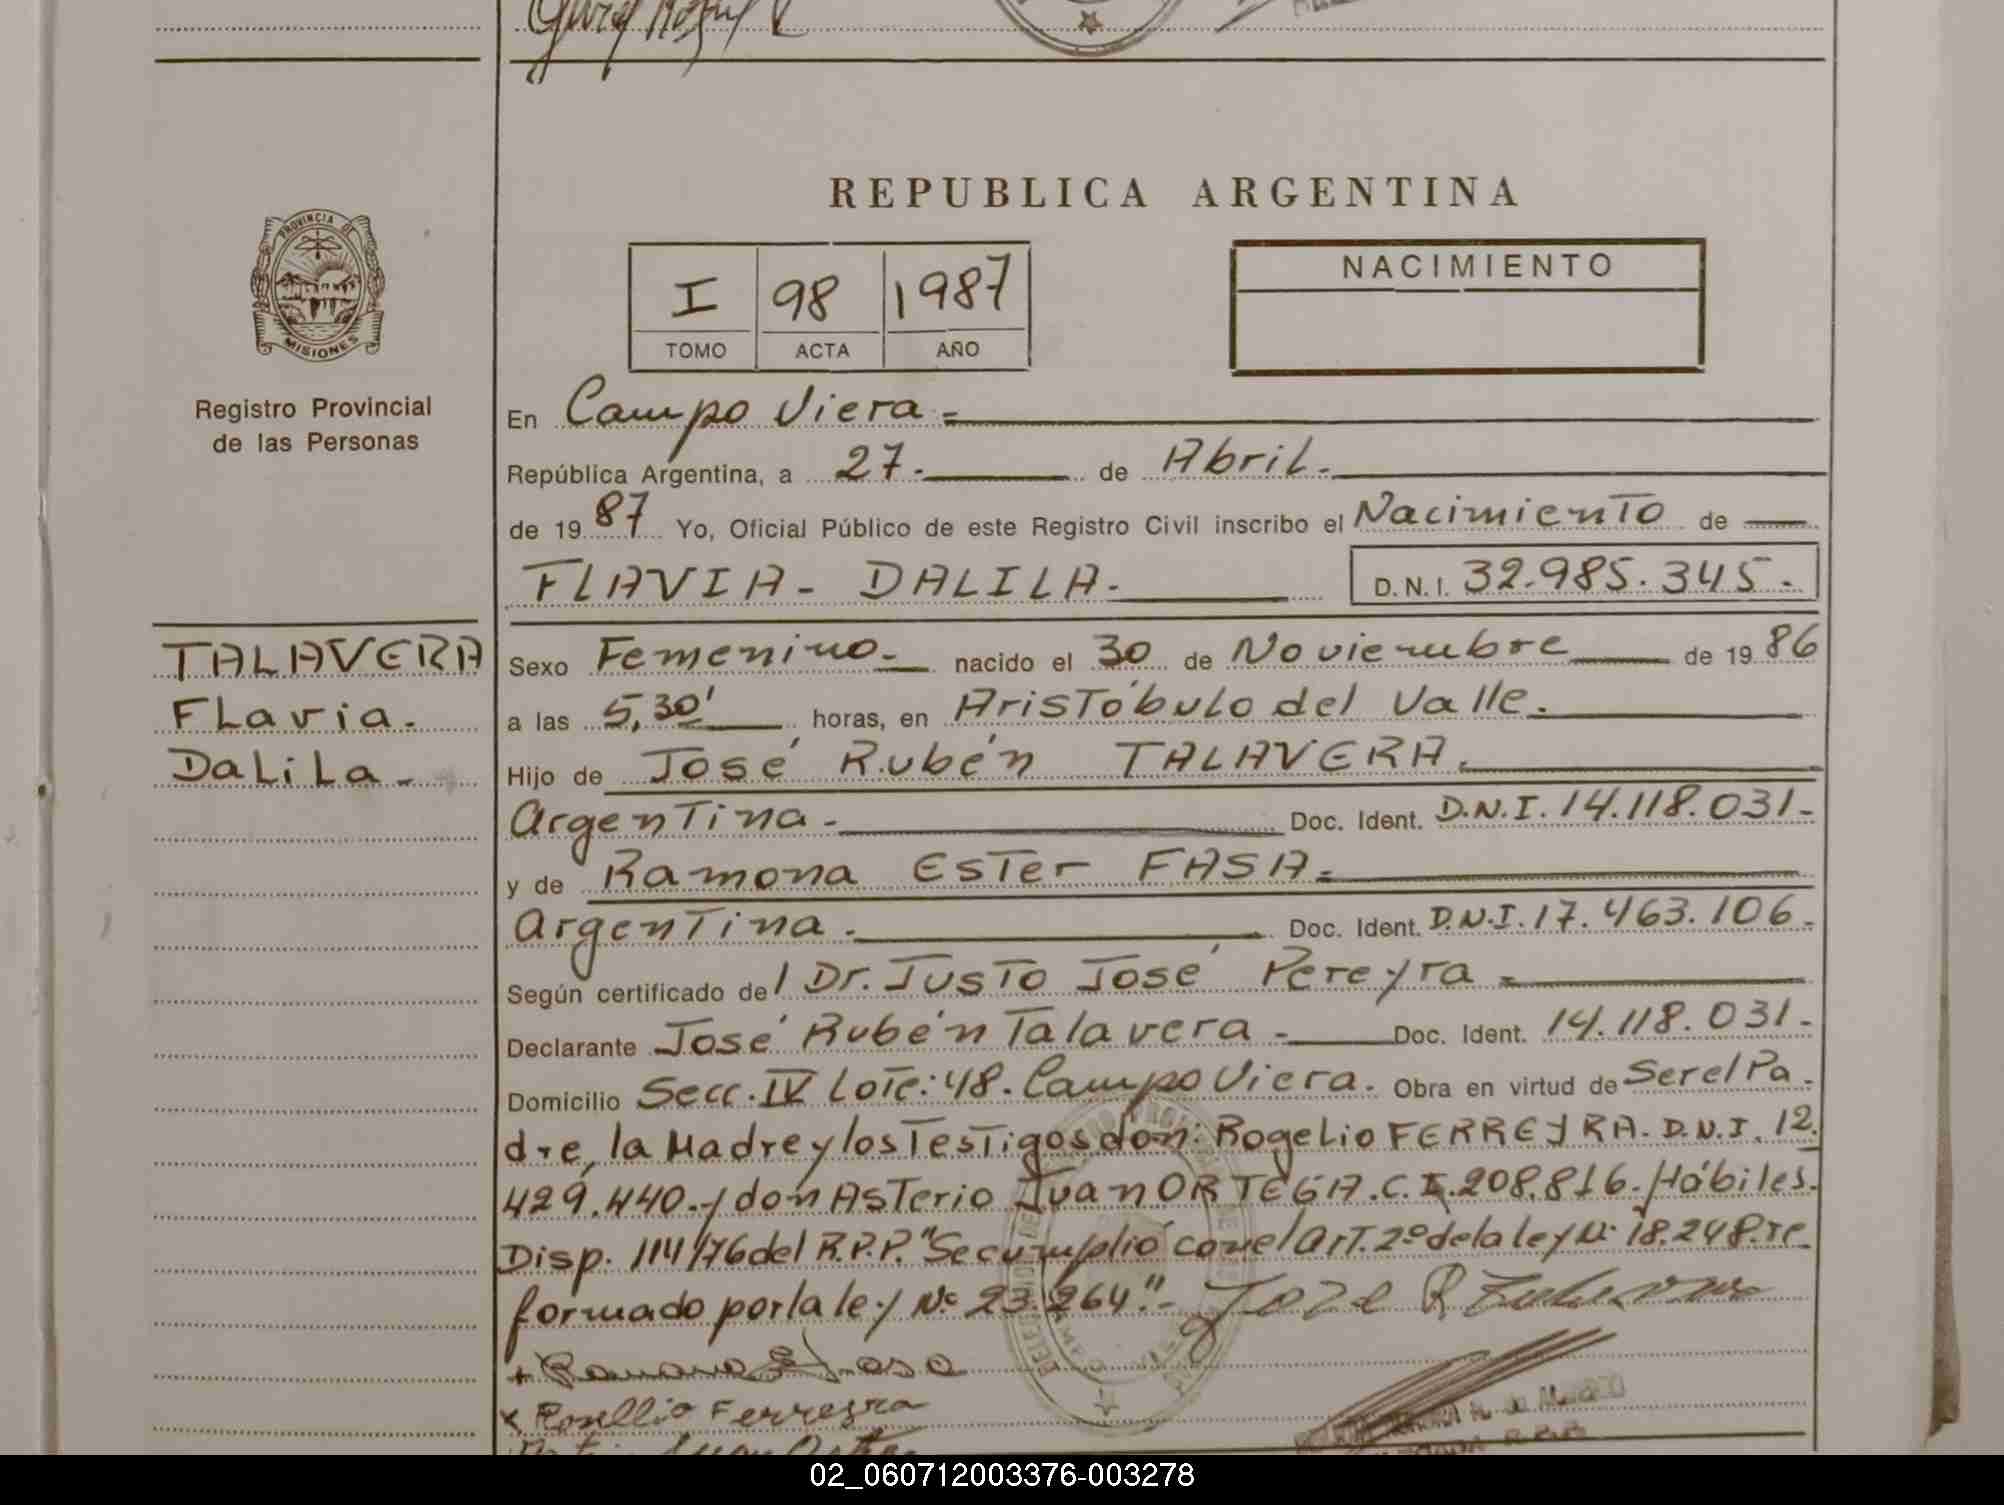 REPUBLICA ARGENTINA
PROVINCIA DE
MISIONES
Registro Provincial
de las Personas
I 98 1987
TOMO ACTA AÑO
NACIMIENTO
En Campo Viera =
República Argentina, a 27. de Abril.
de 19 87 Yo, Oficial Público de este Registro Civil inscribo el Nacimiento de
FLAVIA - DALILA. D.N.I. 32.985.345.
TALAVERA
Flavia.
Dalila -
Sexo Femenino - nacido el 30 de Noviembre de 19 86
a las 5,30' horas, en Aristóbulo del Valle.
Hijo de José Rubén TALAVERA.
Argentina - Doc. Ident. D.N.I. 14.118.031-
y de Ramona Ester FASA =
Argentina. Doc. Ident. D.N.I. 17.463.106.
Según certificado del Dr. Justo José Pereyra =
Declarante José Rubén Talavera - Doc. Ident. 14.118.031-
Domicilio Secc. IV Lote: 48. Campo Viera. Obra en virtud de Ser el Pa-
dre, la Madre y los Testigos don: Rogelio FERREYRA. D.N.I. 12.
429.440.- y don Asterio Juan ORTEGA. C.I. 208.816. Hábiles.
Disp. 114/76 del R.P.P. "Se cumplió con el Art. 2º de la ley Nº 18.248. re
formado por la ley Nº 23.264". - Jose R Talavera
+ Ramona E Fasa
x Rosellio Ferreyra
02_060712003376-003278